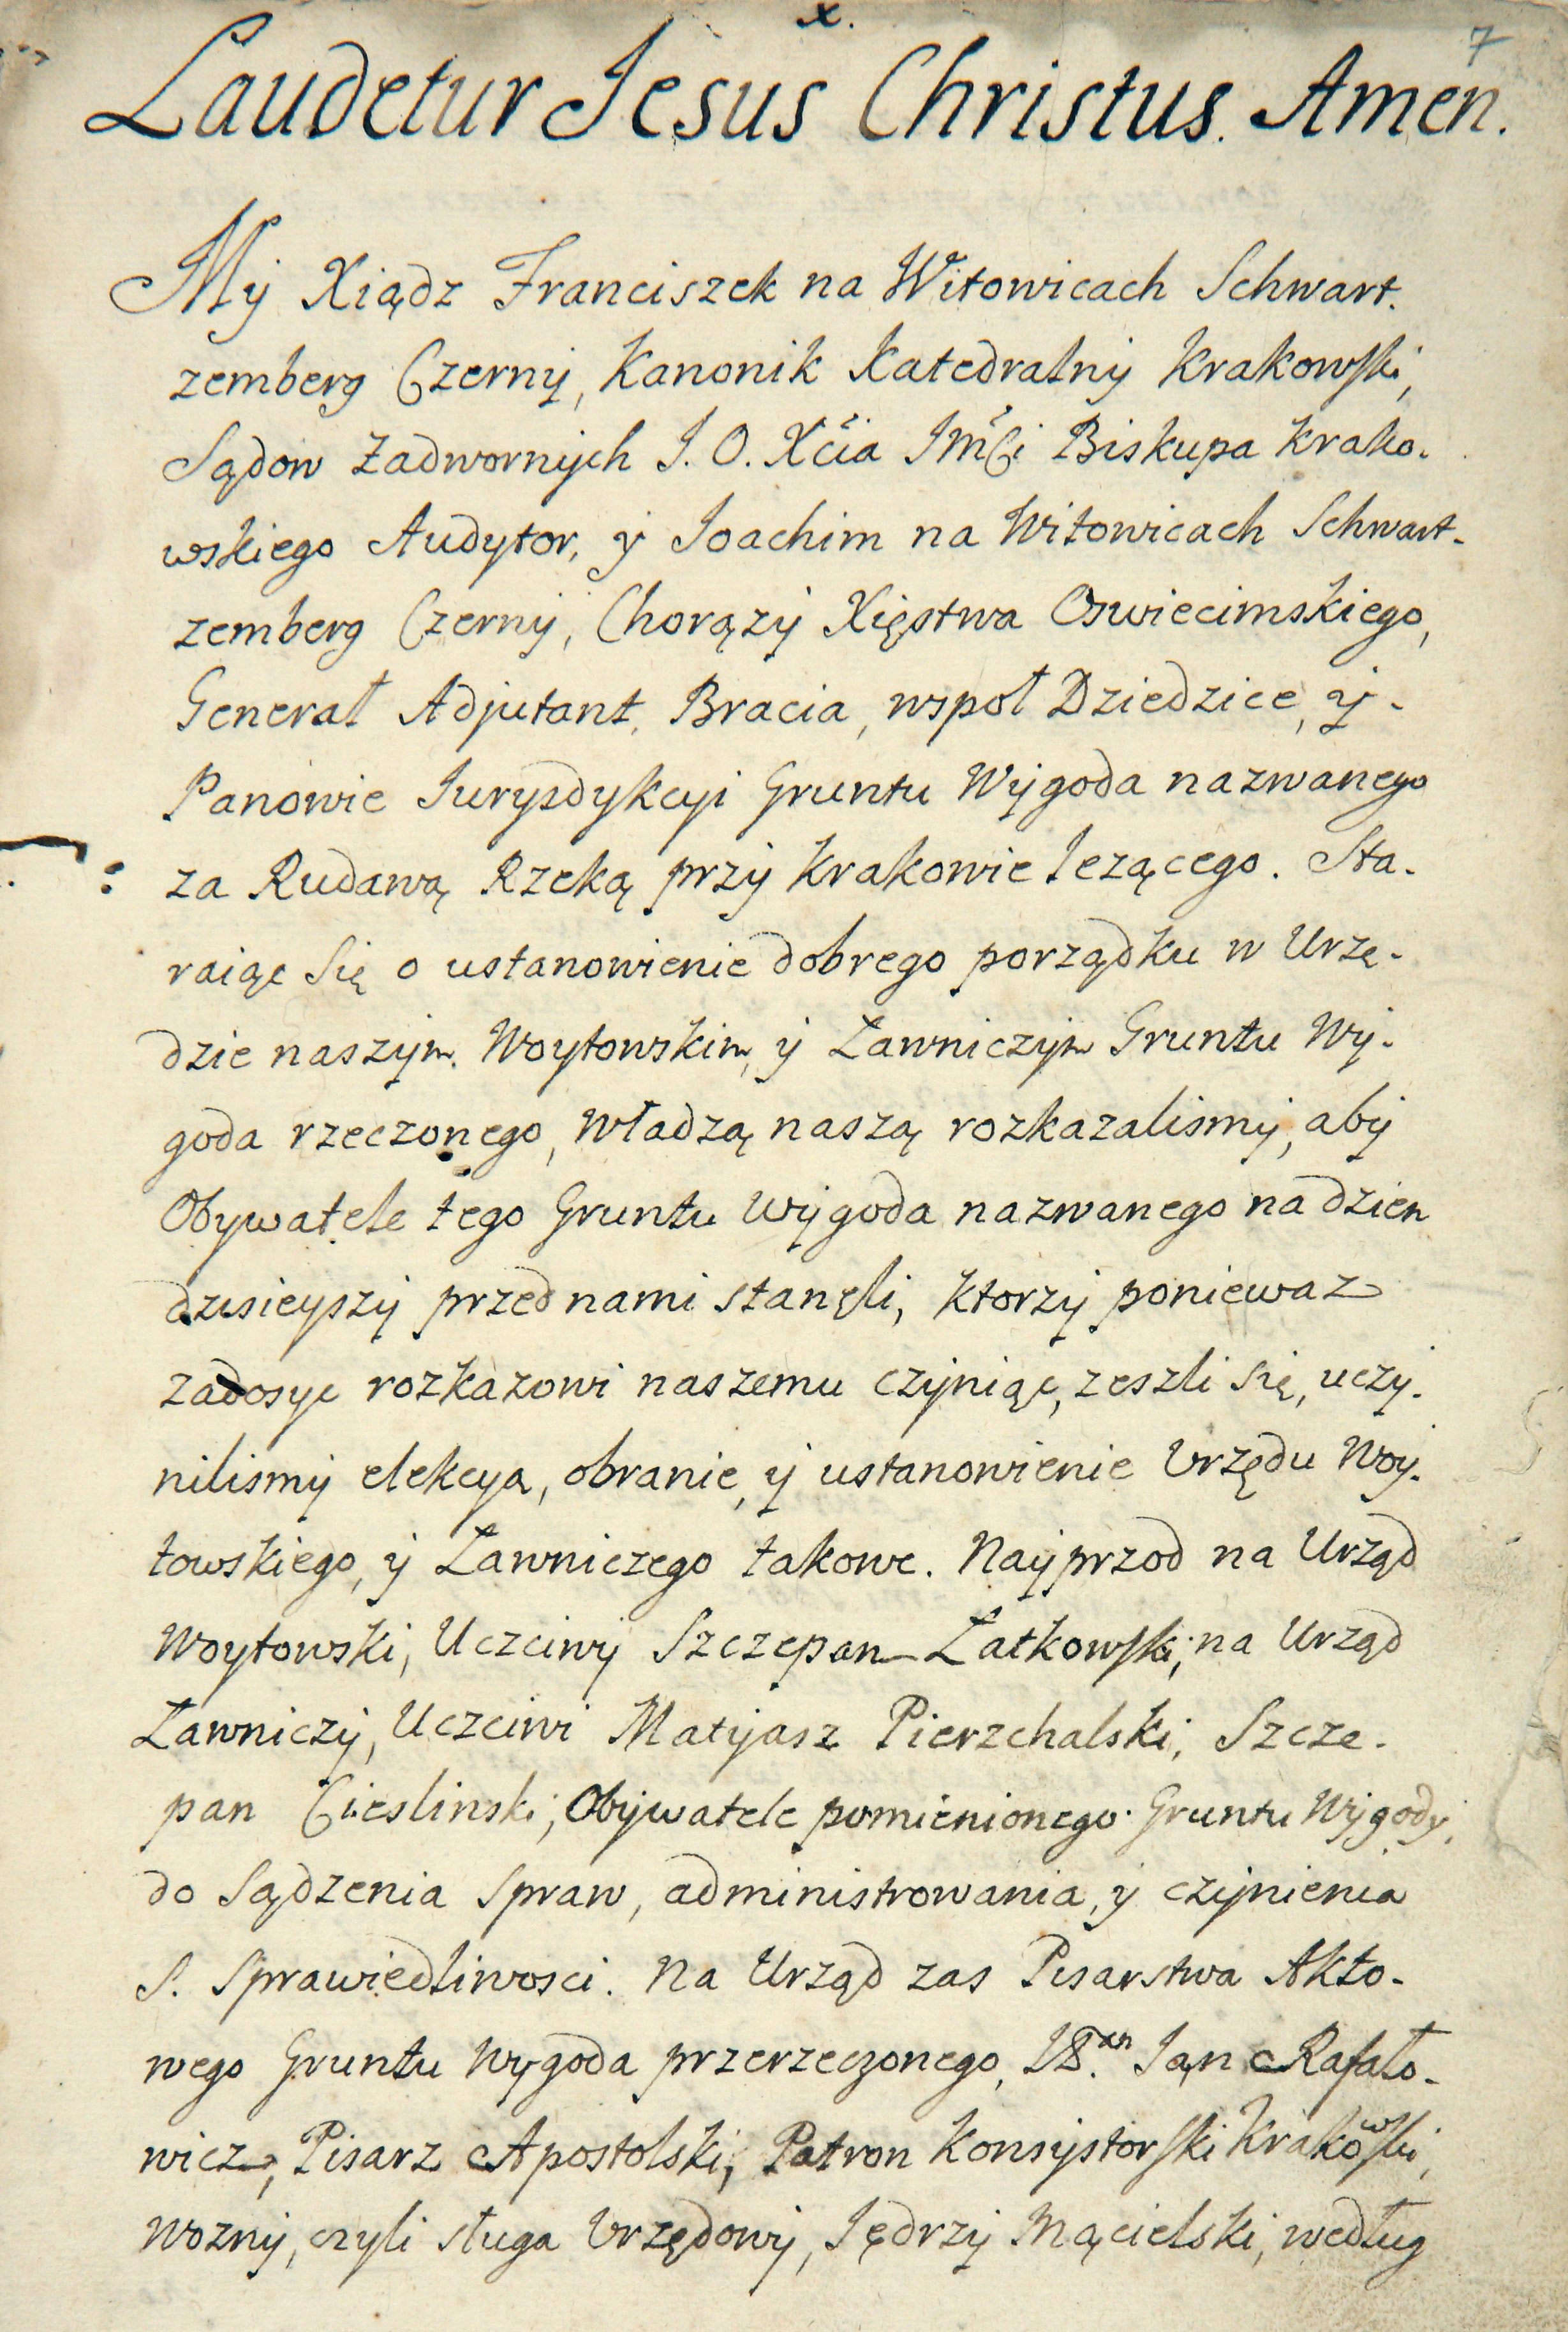 x.
7
Laudetur Jesus Christus. Amen.
My Xiądz Franciszek na Witowicach Schwart.
zemberg Czerny, Kanonik Katedralny Krakowski,
Sądow Zadwornych J. O. Xcia Jmci Biskupa Krako.
wskiego Audytor, y Joachim na Witowicach Schwart-
zemberg Czerny, Chorązy Xięstwa Oswiecimskiego,
Generał Adjutant, Bracia, wspoł Dziedzice, y -
Panowie Jurysdykcyi Gruntu Wygoda nazwanego
za Rudawą Rzeką przy Krakowie lezącego. Sta.
raiąc Się o ustanowienie dobrego porządku w Urzę-
dzie naszym. Woytowskim, y Ławniczym Gruntu Wy-
goda rzeczonego, Władzą naszą rozkazalismy, aby
Obywatele tego Gruntu Wygoda nazwanego na dzien
dzisieyszy przed nami stanęli, ktorzy poniewaz
zadosyc rozkazowi naszemu czyniąc, zeszli się, uczy.
nilismy elekcyą, obranie, y ustanowienie Urzędu Woy.
towskiego, y Ławniczego takowe. Nayprzod na Urząd
Woytowski, Uczciwy Szczepan Łatkowski; na Urząd
Ławniczy, Uczciwi Matyasz Pierzchalski, Szcze-
pan Cieslinski, Obywatele pomienionego Gruntu Wygody,
do Sądzenia Spraw, administrowania, y czynienia
S. Sprawiedliwosci. Na Urząd zas Pisarstwa Akto-
wego Gruntu Wygoda przerzeczonego, Jan Rafało-
wicz, Pisarz Apostolski, Patron Konsystorski Krakowski,
Wozny, czyli sługa Urzędowy, Jędrzy Mącielski, według